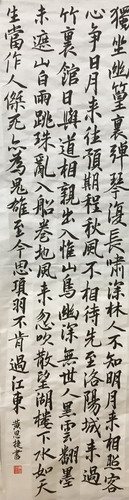 獨坐幽篁裏彈琴復長嘯深林人不知明月来相照
心争日月来往預期程秋風不相待先至洛陽城来過
竹裏館日與道相親出入惟山鳥幽深無世人黑雲翻墨
未遮山白雨跳珠亂入船卷地風来忽吹散望湖樓下水如天
生當作人傑死亦為鬼雄至今思項羽不肯過江東
黄思捷書